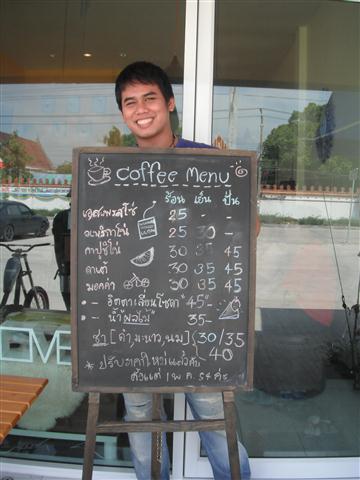 coffee Menu
ร้อน เย็น ปั่น
เอสเพรสโซ่ 25 - -
อเมริกาโน่ 25 30 -
คาปูชิโน่ 30 35 45
ลาเต้ 30 35 45
มอคค่า 30 35 45
- อิตาเลี่ยนโซดา "45"-
- น้ำผลไม้ 35-
ชา [ดำ, มะนาว, นม] {30/35
40
* ปรับราคาใหม่แล้วค่ะ
ตั้งแต่ 1 พ.ค. 54 ค่ะ